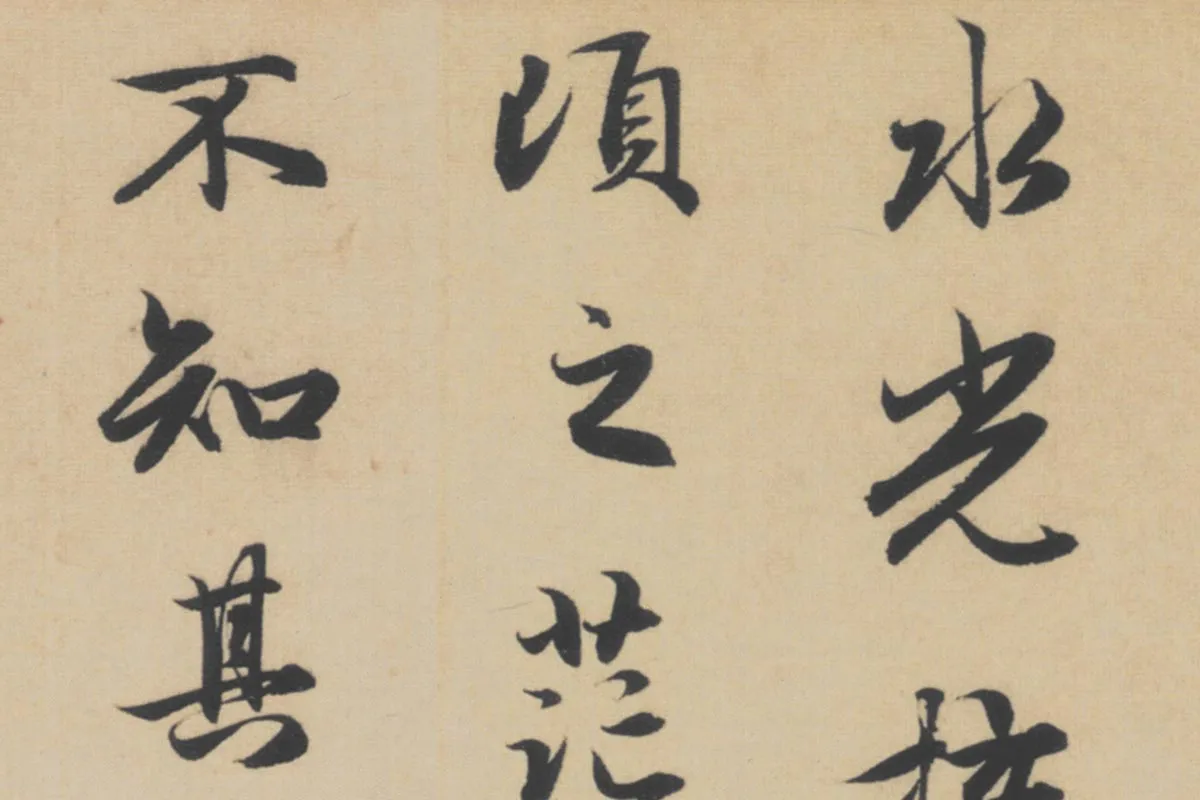 水光接
頃之茫
不知其